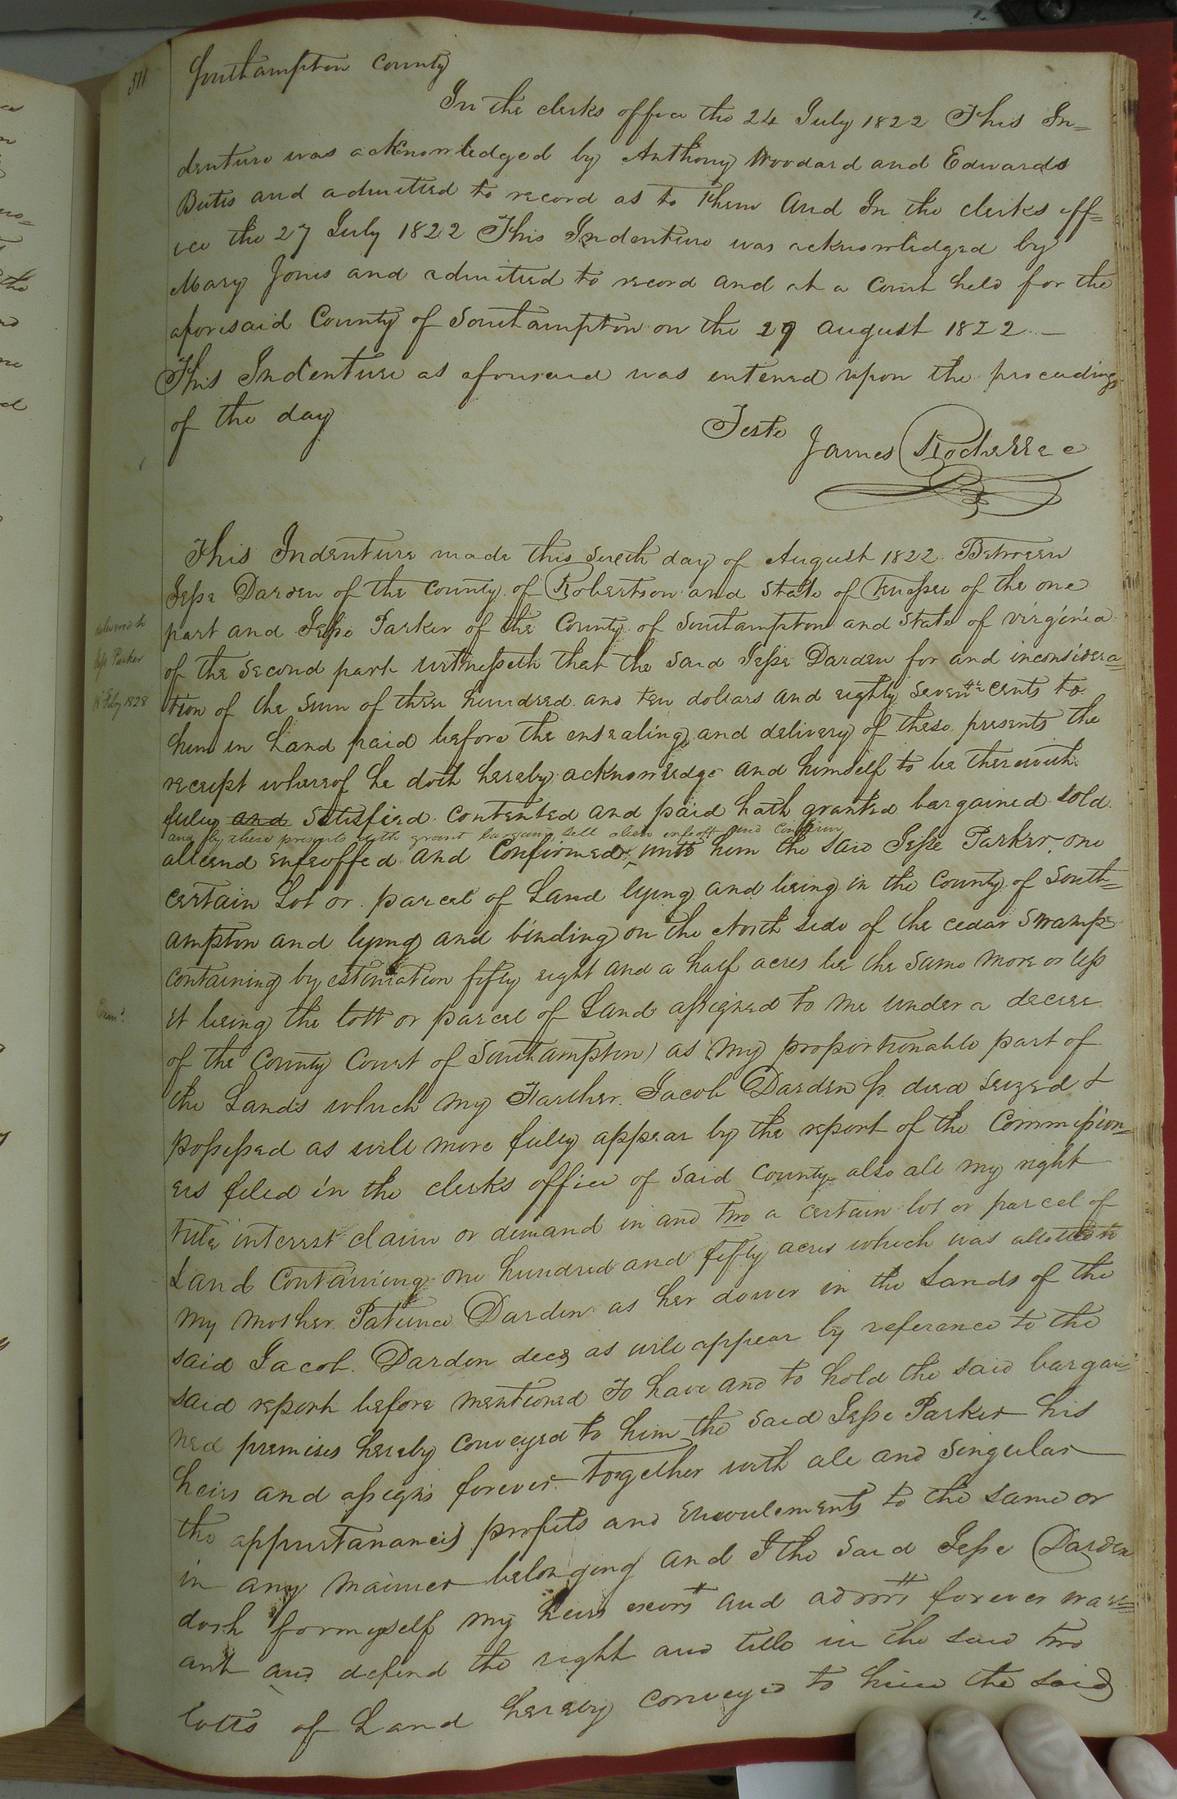 Southampton County
In the clerks office the 24 July 1822 This In=
denture was acknowledged by Anthony Woodard and Edwards
Butts and admitted to record as to them And In the clerks off=
ice the 27 July 1822 This Indenture was acknowledged by
Mary Jones and admitted to record and at a Court held for the
aforesaid County of Southampton on the 29 August 1822 —
This Indenture as aforesaid was entered upon the proceedings
of the day
Teste James Rochelle
This Indenture made this sixth day of August 1822 Between
Jesse Darden of the County of Robertson and State of of the one
part and Jesse Parker of the County of Southampton and State of virginia
of the second part witnesseth that the said Jesse Darden for and inconsidera=
tion of the sum of three hundred and ten dollars and eighty seven cents to
him in hand paid before the ensealing and delivery of these presents the
receipt whereof he doth hereby acknowledge and himself to be therewith
fully and satisfied contented and paid hath granted bargained sold
and by these presents doth grant bargain sell alien enfeoff and Confirm
aliend enfeoffed and Confirmed unto him the said Jesse Parker one
certain Lot or parcel of Land lying and being in the County of South=
ampton and lying and binding on the North side of the cedar Swamp
containing by estimation fifty eight and a half acres be the same more or less
it being the lott or parcel of Land assigned to me under a decree
of the County Court of Southampton as my proportionable part of
the Lands which my Farther Jacob Darden died seized &
possessed as will more fully appear by the report of the Commission=
ers filed in the clerks office of said County also all my right
title interest claim or demand in and two a certain lot or parcel of
Land Containing one hundred and fifty acres which was allotted to
my mother Patience Darden as her dower in the Lands of the
said Jacob Darden decd as will appear by reference to the
said report before mentioned To have and to hold the said bargai=
ned premises hereby conveyed to him the said Jesse Parker his
heirs and assigns forever Together with all and singular
the appurtanances profits and emoulements to the same or
in any manner belonging and I the said Jesse Darden
doth for myself my heirs exors and admrs forever warr=
ant and defend the right and title in the said two
lotts of Land hereby conveyed to him the said
delivered to
Jesse Parker
Feby 1828
Exam.d